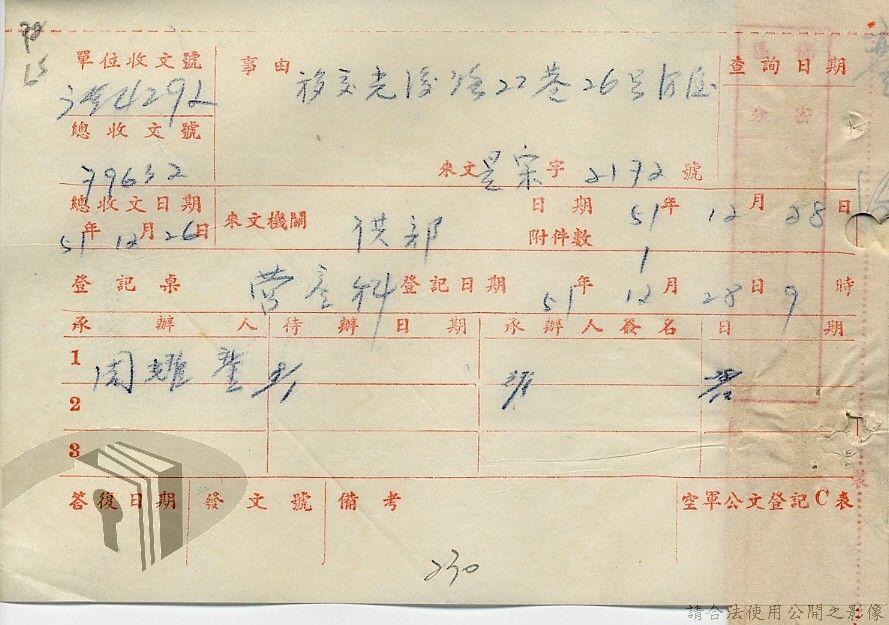 單位收文號 事由 查詢日期
4292 移交光復路22巷26號
總收文號
79632 來文 字 2172 號
總收文日期 來文機關 供部 日期 51年12月28日
51年12月26日 附件數 1
登記桌 營產科 登記日期 51年12月28日9時
承辦人 待辦日期 承辦人簽名 日期
1 周
2
3
答復日期 發文號 備考 空軍公文登記C表
230
請合法使用公開之影像